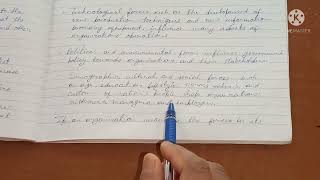 to the
at the
and other
Technological forces such as the development of
new production techniques and new information
processing equipment, influence many aspects of
organisations operations
Political and environmental forces influence government
policy towards organisations and their stakeholders
Demographic cultural and social forces such
as age, education lifestyle norms values and
of nations people shape organisations
customers managers and employees
If an organisation the forces in its
KINEMASTER